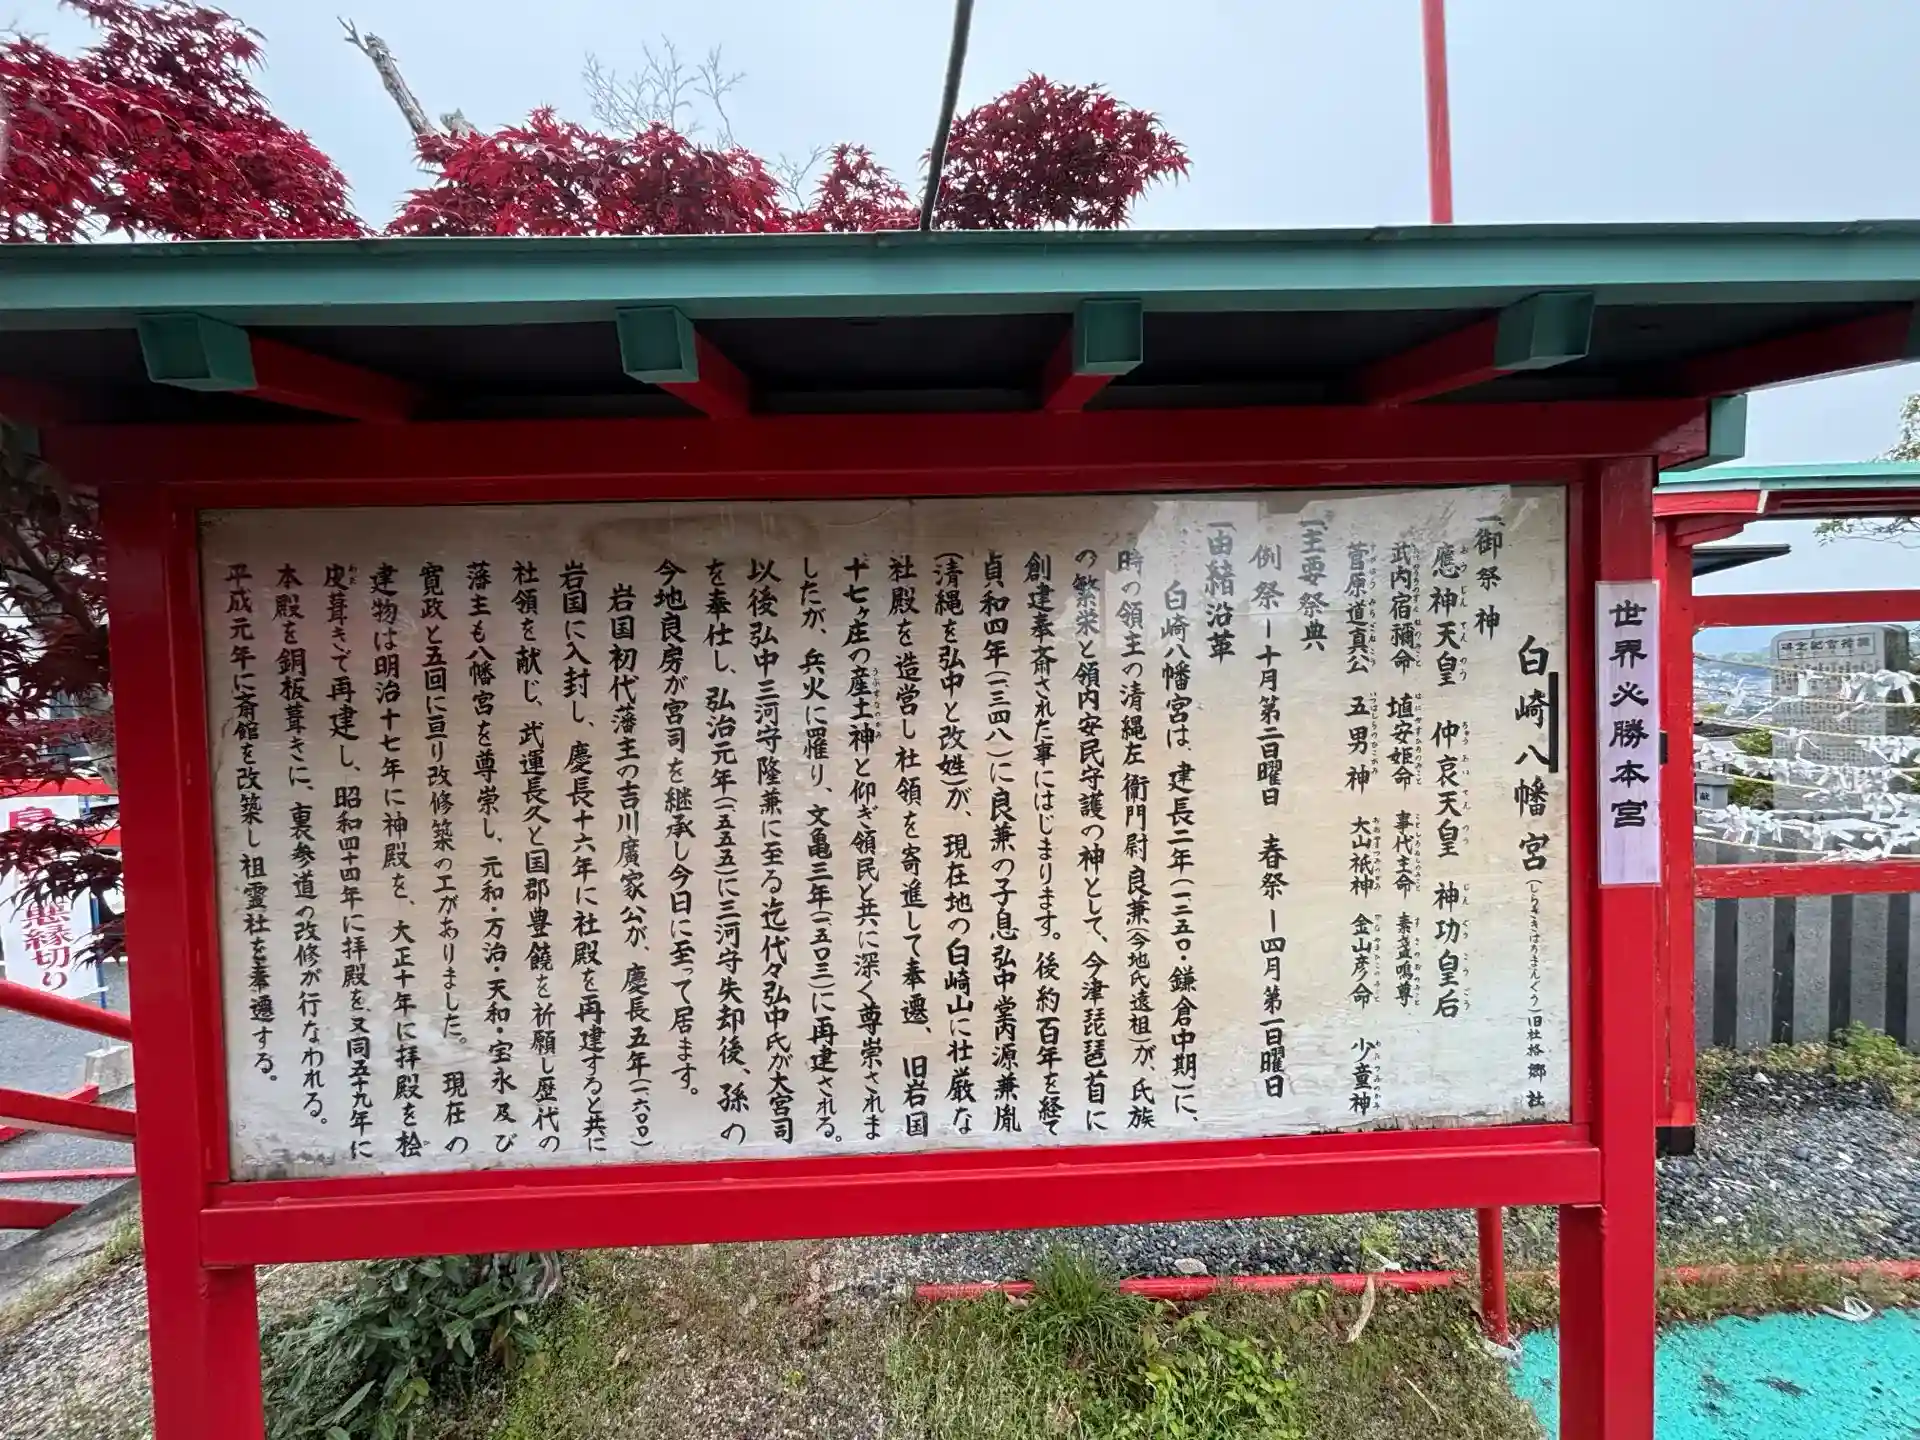 世界必勝本宮
白崎八幡宮(しらさきはちまんぐう)旧社格郷社
一御祭神
應神天皇 仲哀天皇 神功皇后
武内宿禰命 埴安姫命 事代主命 素盞嗚尊
菅原道真公 五男神 大山祇神 金山彦命 少童神
一主要祭典
例祭ー十月第二日曜日 春祭ー四月第一日曜日
一由緒沿革
白崎八幡宮は、建長二年(一二五〇・鎌倉中期)に、
時の領主の清縄左衛門尉良兼(今地氏遠祖)が、氏族
の繁栄と領内安民守護の神として、今津琵琶首に
創建奉斎された事にはじまります。後約百年を経て
貞和四年(一三四八)に良兼の子息弘中堂内源兼胤
(清縄を弘中と改姓)が、現在地の白崎山に壮厳な
社殿を造営し社領を寄進して奉遷、旧岩国
十七ヶ庄の産土神と仰ぎ領民と共に深く尊崇されま
したが、兵火に罹り、文亀三年(一五〇三)に再建される。
以後弘中三河守隆兼に至る迄代々弘中氏が大宮司
を奉仕し、弘治元年(一五五五)に三河守失却後、孫の
今地良房が宮司を継承し今日に至って居ます。
岩国初代藩主の吉川廣家公が、慶長五年(一六〇〇)
岩国に入封し、慶長十六年に社殿を再建すると共に
社領を献じ、武運長久と国郡豊饒を祈願し歴代の
藩主も八幡宮を尊崇し、元和・万治・天和・宝永及び
寛政と五回に亘り改修築の工がありました。現在の
建物は明治十七年に神殿を、大正十年に拝殿を桧
皮葺きで再建し、昭和四十四年に拝殿を、又同五十九年に
本殿を銅板葺きに、裏参道の改修が行なわれる。
平成元年に斎館を改築し祖霊社を奉遷する。
悪縁切り